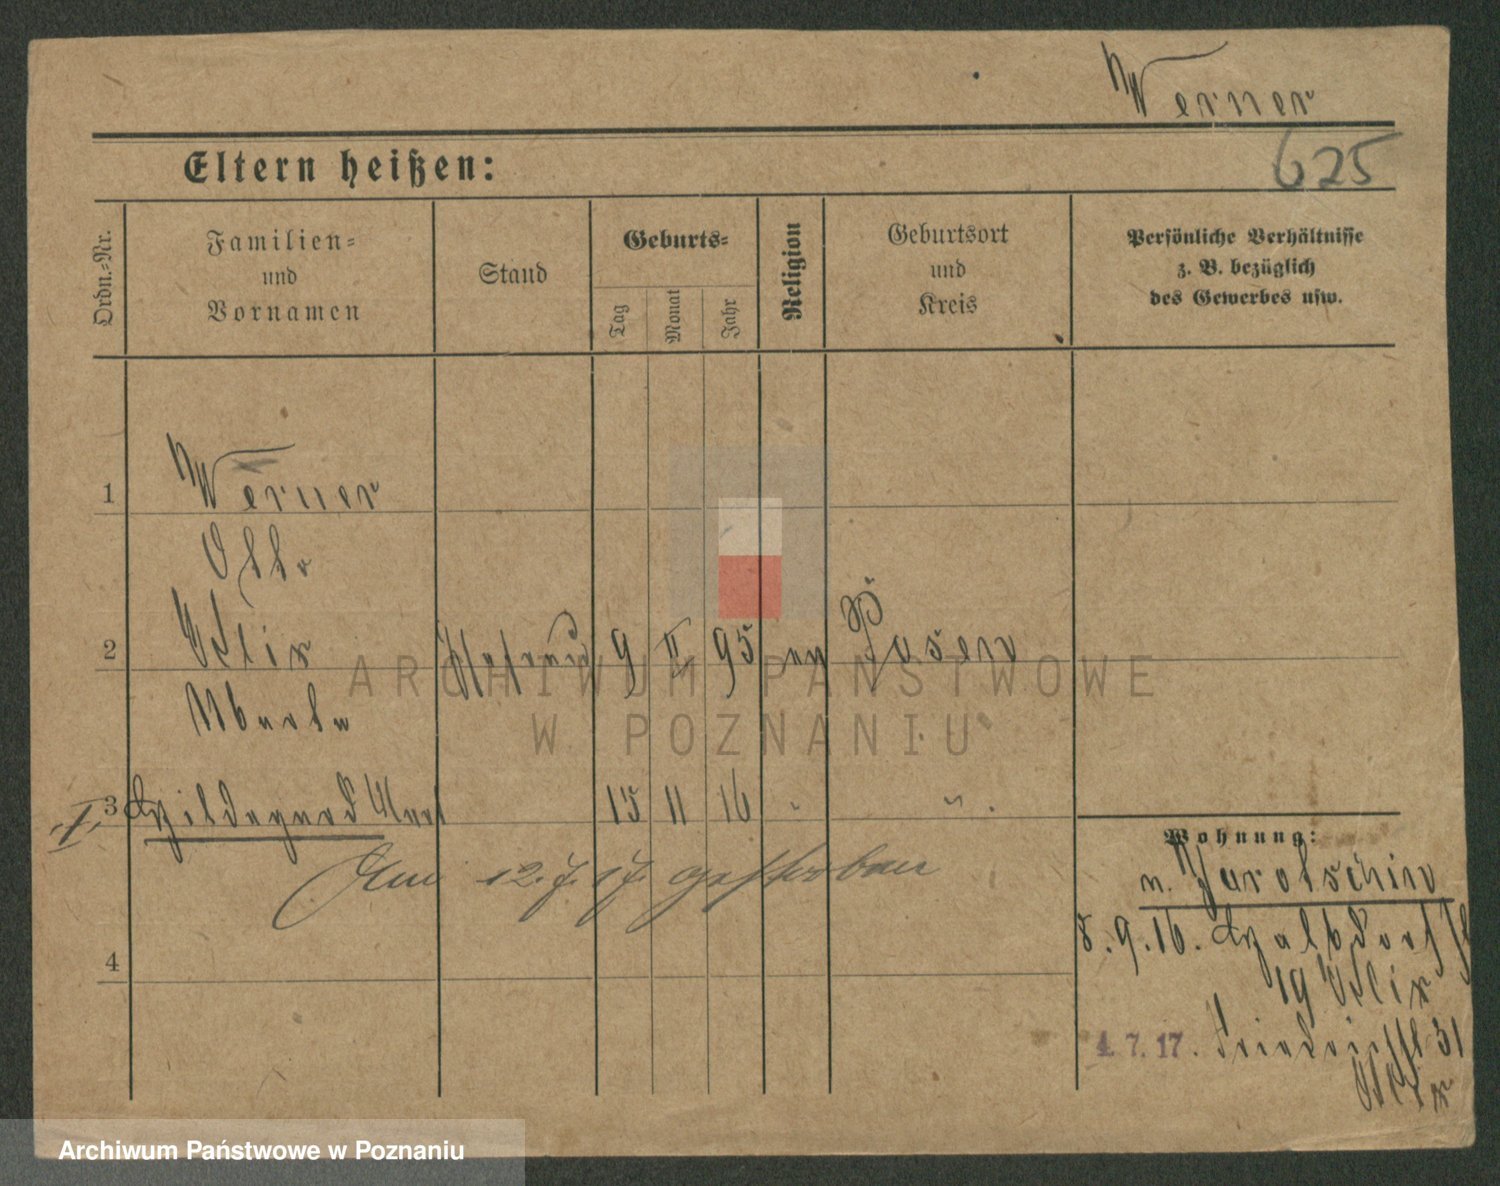 Werner
625
Eltern heißen:
Ordn.-Nr.
Familien-
und
Vornamen
Stand
Geburts-
Tag
Monat
Jahr
Religion
Geburtsort
und
Kreis
Persönliche Verhältnisse
z. B. bezüglich
des Gewerbes usw.
1 Werner
Otto
2 9 II 95 ev Posen
3 Hildegard 15 11 16 " "
Am 12.7.17. gestorben
4
Wohnung:
n. Jarotschin
8.9.16. Halbdorf
19
4.7.17. Friedrichstr 31
ARCHIWUM PAŃSTWOWE
W POZNANIU
Archiwum Państwowe w Poznaniu